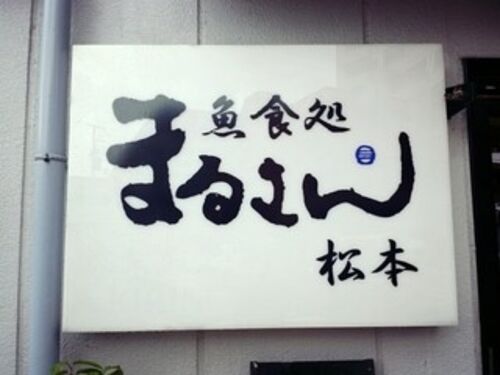 魚食処
まるさん
松本